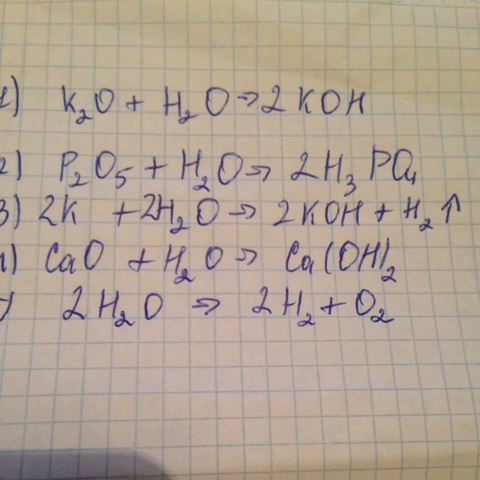 1) K₂O + H₂O → 2 KOH
2) P₂O₅ + H₂O → 2H₃PO₄
3) 2K + 2H₂O → 2KOH + H₂↑
4) CaO + H₂O → Ca(OH)₂
2H₂O → 2H₂ + O₂